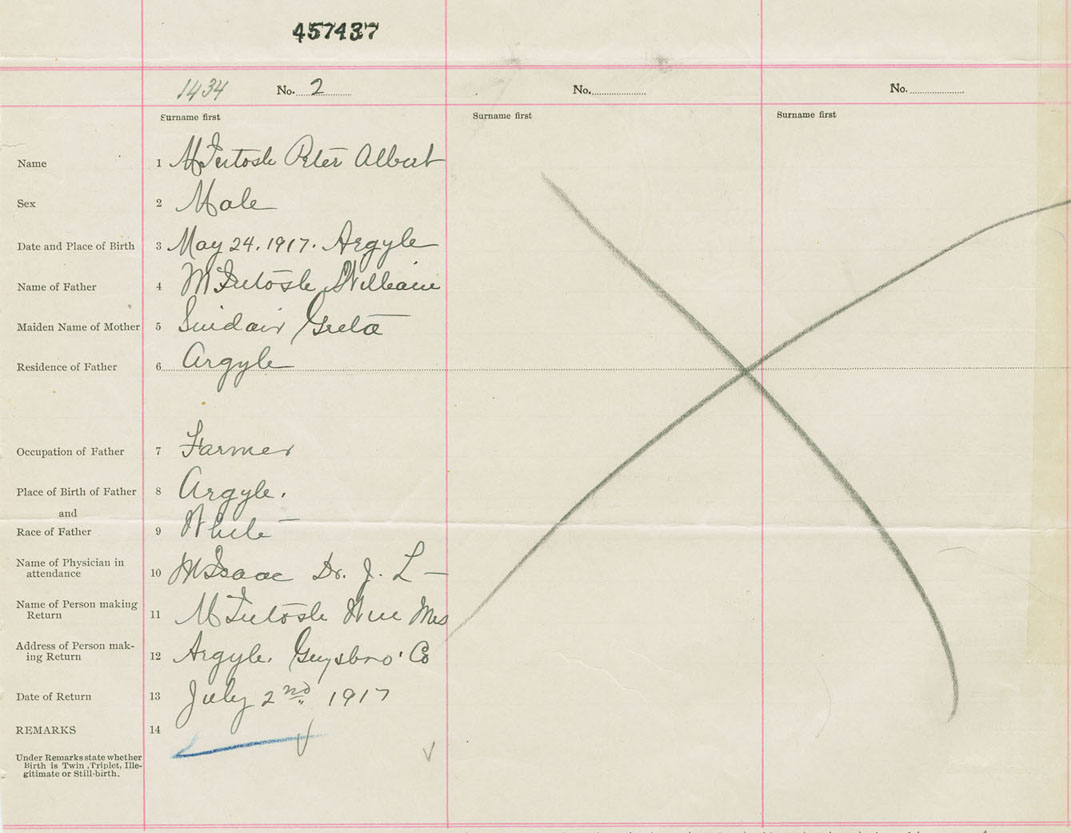 457437
1434 No. 2 No. No.
Surname first Surname first Surname first
Name 1 McIntosh Peter Albert
Sex 2 Male
Date and Place of Birth 3 May 24. 1917. Argyle
Name of Father 4 McIntosh William
Maiden Name of Mother 5 Sinclair Greta
Residence of Father 6 Argyle
Occupation of Father 7 Farmer
Place of Birth of Father 8 Argyle.
and
Race of Father 9 White
Name of Physician in
attendance 10 McIsaac Dr. J. L —
Name of Person making
Return 11 McIntosh Wm Mrs
Address of Person mak-
ing Return 12 Argyle. Guysboro' Co
Date of Return 13 July 2nd 1917
REMARKS 14
Under Remarks state whether
Birth is Twin, Triplet, Ille-
gitimate or Still-birth.